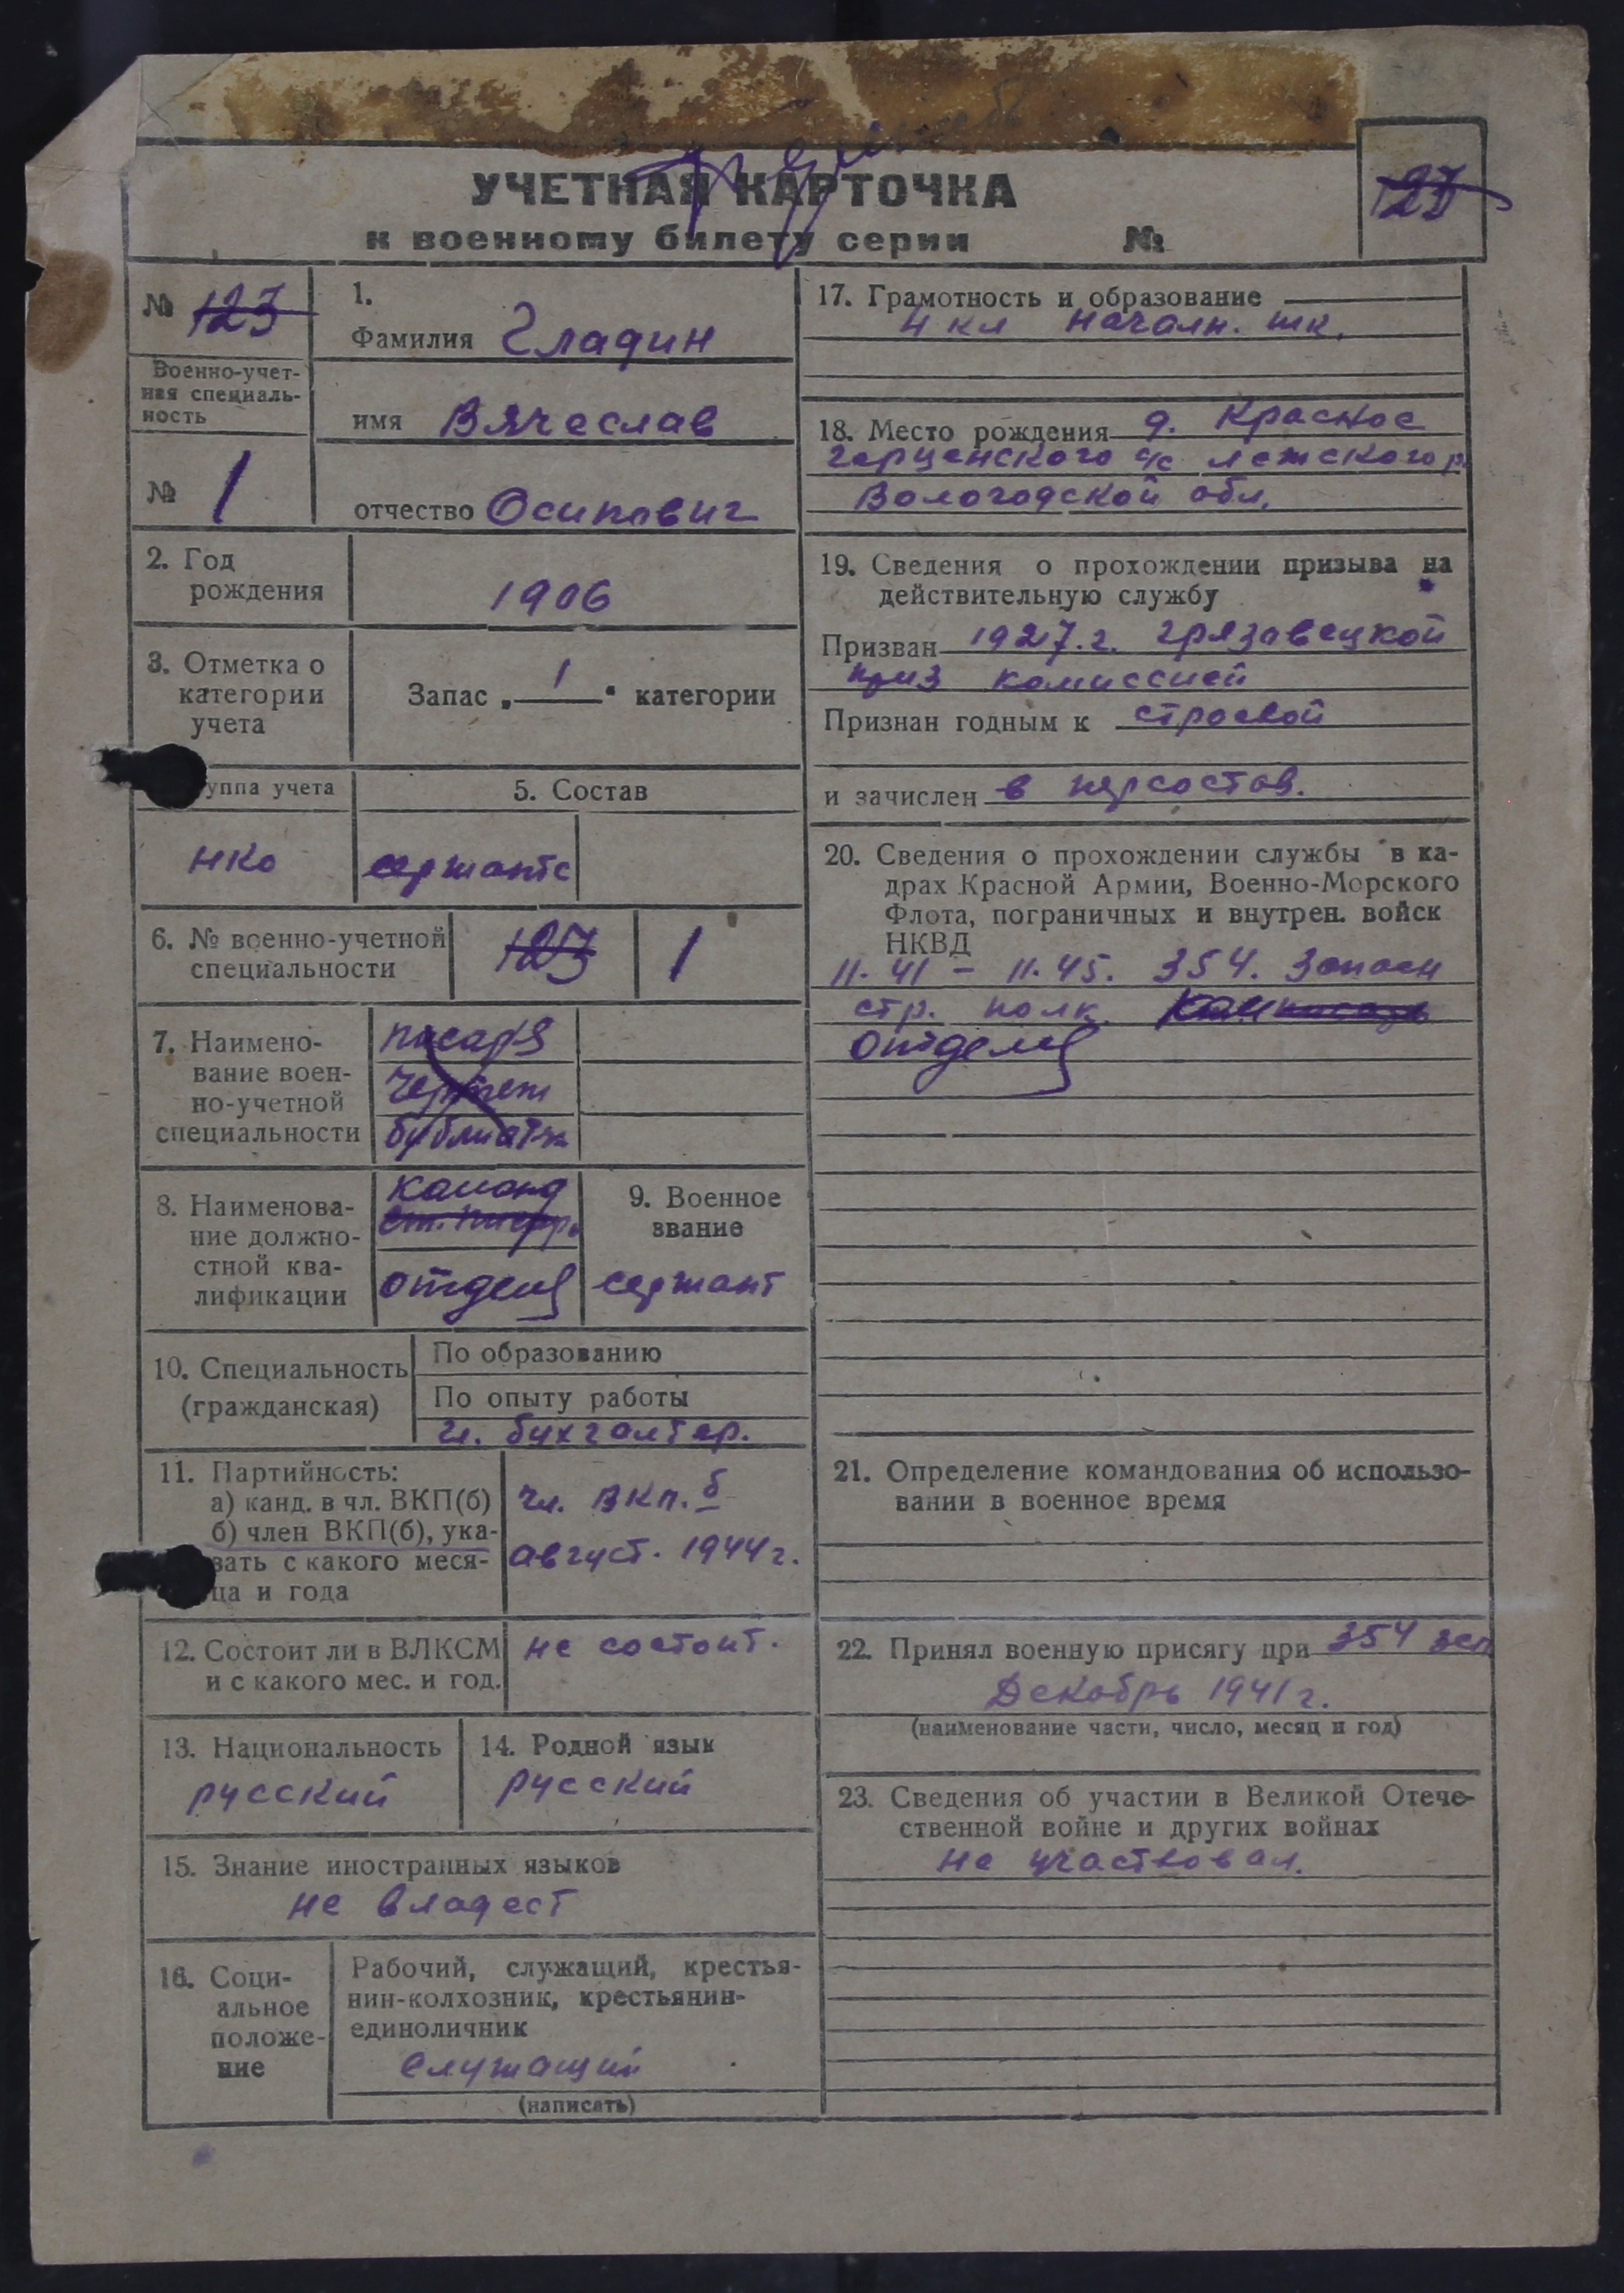 УЧЕТНАЯ КАРТОЧКА
к военному билету серии №
127
№ 123
Военно-учет-
ная специаль-
ность
№ 1
1.
Фамилия Гладин
имя Вячеслав
отчество Осипович
2. Год
рождения
1906
3. Отметка о
категории
учета
Запас „ 1 “ категории
уппа учета
5. Состав
НКО
сержантс
6. № военно-учетной
специальности
123
1
7. Наимено-
вание воен-
но-учетной
специальности
писаря
чертеж
библиотк
8. Наименова-
ние должно-
стной ква-
лификации
команд
ст. писарь
отдел
9. Военное
звание
сержант
10. Специальность
(гражданская)
По образованию
По опыту работы
гл. бухгалтер.
11. Партийность:
а) канд. в чл. ВКП(б)
б) член ВКП(б), ука-
зать с какого меся-
ца и года
чл. ВКП.б
август. 1944г.
12. Состоит ли в ВЛКСМ
и с какого мес. и год.
не состоит.
13. Национальность
русский
14. Родной язык
русский
15. Знание иностранных языков
не владеет
16. Соци-
альное
положе-
ние
Рабочий, служащий, крестья-
нин-колхозник, крестьянин-
единоличник
служащий
(написать)
17. Грамотность и образование
4 кл началн. шк.
18. Место рождения д. Красное
Герценского с/с Лежского р.
Вологодской обл.
19. Сведения о прохождении призыва на
действительную службу
Призван 1927.г. Грязовецкой
приз комиссией
Признан годным к строевой
и зачислен в персостав.
20. Сведения о прохождении службы в ка-
драх Красной Армии, Военно-Морского
Флота, пограничных и внутрен. войск
НКВД
11.41 - 11.45. 354. Запасн
стр. полк. ком
отдел
21. Определение командования об использо-
вании в военное время
22. Принял военную присягу при 354 зсп
Декабрь 1941г.
(наименование части, число, месяц и год)
23. Сведения об участии в Великой Отече-
ственной войне и других войнах
Не участвовал.